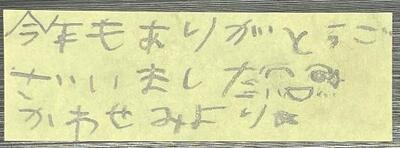 今年もありがとうご
ざいいました
かわせみより